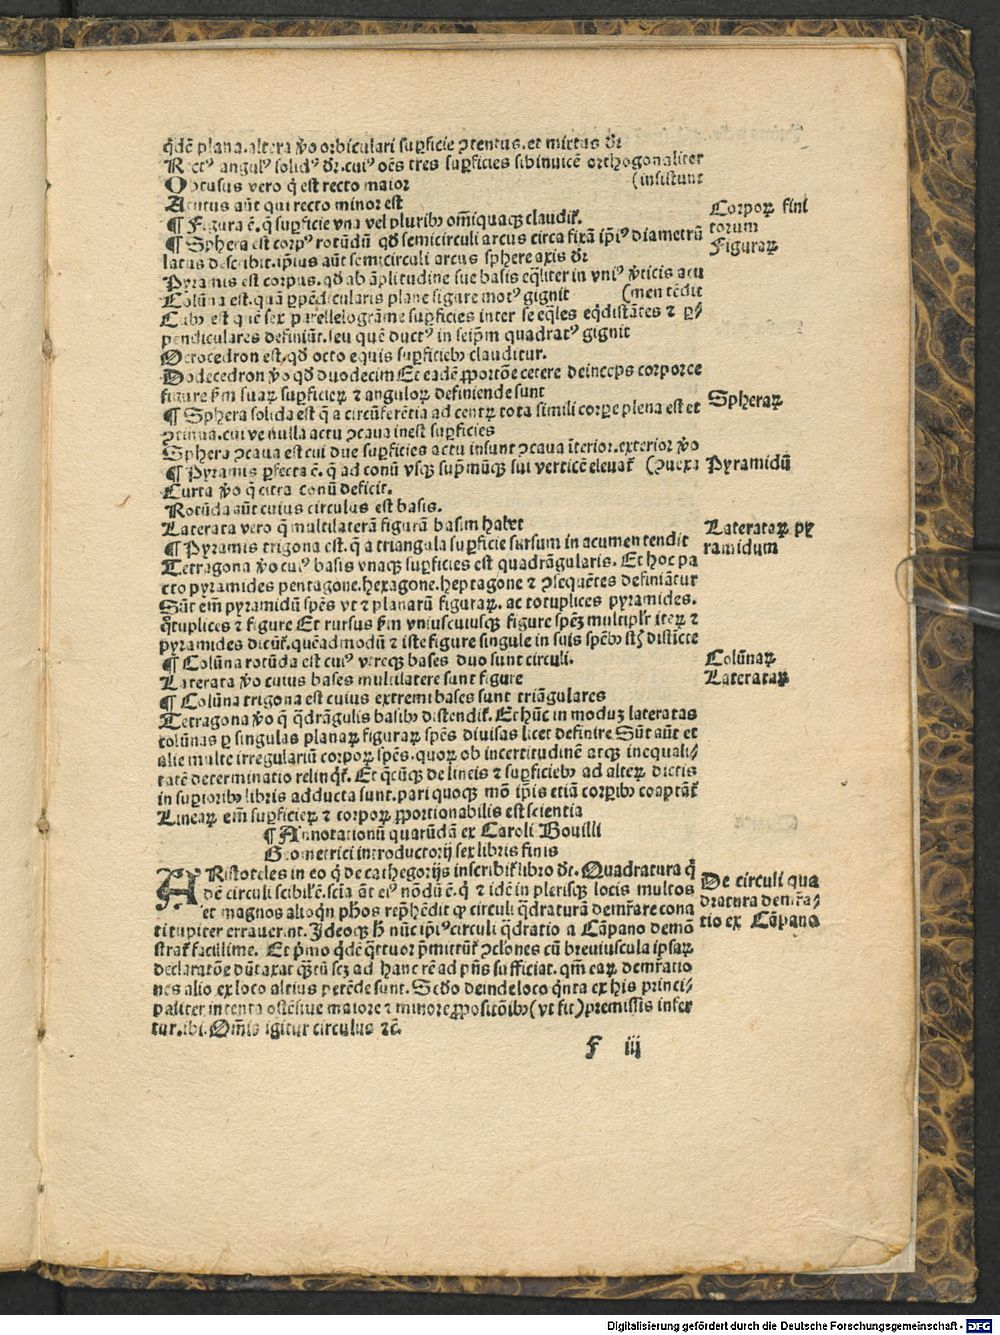 q̃dē plana. altera ꝟo orbiculari suꝑficie ↄtentus. et mixtus dr̄
Rectꝰ angulꝰ solidꝰ dr̄. cuiꝰ oēs tres suꝑficies sibinuicē orthogonaliter
Obtusus vero q̄ est recto maior (insistunt
Acutus aūt qui recto minor est
¶ Figura ē. q̄ suꝑficie vna vel pluribꝫ om̄iquaqꝫ claudit̄.
Corpoꝝ fini
toꝛum
Figuraꝝ
¶ Sphera est corpꝰ rotūdū qd̄ semicirculi arcus circa fixā ip̄iꝰ diametrū
latus describit. ip̄ius aūt semicirculi arcus sphere axis dr̄
Pyramis est corpus. qd̄ ab āplitudine sue basis eq̄liter in vniꝰ ꝟticis acu
Colūna est. quā ꝑpēdicularis plane figure motꝰ gignit (men tēdit
Cubꝰ est quē sex parellelogrāme suꝑficies inter se eq̄les eq̄distātes ⁊ ꝑ⸗
pendiculares definiūt. seu quē ductꝰ in seip̄m quadratꝰ gignit
Octocedron est. qd̄ octo equis suꝑficiebꝫ clauditur.
Dodecedron ꝟo qd̄ duodecim Et eadē ꝓportōe cetere deinceps corporee
figure ẜm suaꝝ suꝑficieꝝ ⁊ anguloꝝ definiende sunt
¶ Sphera solida est q̄ a circūferētia ad centꝝ tota simili corpe plena est et
Spheraꝝ
ↄtinua. cui ve nulla actu ↄcaua inest suꝑficies
Sphera ↄcaua est cui due suꝑficies actu insunt ↄcaua īterior. exterior ꝟo
¶ Pyramis ꝑfecta ē. q̄ ad conū vsqꝫ supmūqꝫ sui verticē eleuat̄ (ↄuexa
Pyramidū
Curta ꝟo q̄ citra conū deficit.
Rotūda aūt cuius circulus est basis.
Laterata vero q̄ multilaterā figurā basim habet
Laterataꝝ py
ramidum
¶ Pyramis trigona est. q̄ a triangula suꝑficie sursum in acumen tendit
Tetragona ꝟo cuiꝰ basis vnaqꝫ suꝑficies est quadrāgularis. Et hoc pa
cto pyramides pentagone. hexagone. heptagone ⁊ ↄsequētes definiātur
Sūt em̄ pyramidū spēs vt ⁊ planarū figuraꝝ. ac totuplices pyramides.
q̄tuplices ⁊ figure Et rursus ẜm vniuscuiusqꝫ figure spēꝫ multipl̄r iteꝝ ⁊
pyramides dicūt̄. quēadmodū ⁊ iste figure singule in suis spēbꝫ st̄ distīcte
¶ Colūna rotūda est cuiꝰ vtreqꝫ bases duo sunt circuli.
Colūnaꝝ
Laterata ꝟo cuius bases multilatere sunt figure
Laterataꝝ
¶ Colūna trigona est cuius extremi bases sunt triāgulares
Tetragona ꝟo q̄ q̄drāgulis basibꝫ distendit̄. Et hūc in moduꝫ lateratas
colūnas ꝑ singulas planaꝝ figuraꝝ spēs diuisas licet definire Sūt aūt et
alie multe irregulariū corpoꝝ spēs. quoꝝ ob incertitudinē atqꝫ inequali⸗
tatē determinatio relinq̄t̄. Et q̄cūqꝫ de lineis ⁊ suꝑficiebꝫ ad alteꝝ dictis
in supioribꝫ libris adducta sunt. pari quoqꝫ mō ip̄is etiā corꝑibꝫ coaptāt̄
Lineaꝝ em̄ suꝑficieꝝ ⁊ corpoꝝ ꝓportionabilis est scientia
¶ Annotationū quarūdā ex Caroli Bouilli
Geometrici introductorij sex libris finis
ARistoteles in eo q̄ de cathegorijs inscribit̄ libro dt̄. Quadratura q̄
De circuli qua
dratura demr̄a⸗
tio ex Cāpano
dē circuli scibil̄ ē. scīa āt eiꝰ nōdū ē. q̄ ⁊ idē in plerisqꝫ locis multos
et magnos alioq̄n ph̄os rep̄hēdit ꝙ circuli q̄draturā demr̄are cona
ti tupiter errauerint. Ideoqꝫ h̄ nūc ip̄iꝰ circuli q̄dratio a Cāpano demō
strat̄ facillime. Et p̄mo q̄dē q̄ttuor p̄mittūt̄ ↄclōnes cū breuiuscula ipsaꝝ
declaratōe dūtaxat q̄ꝫtū scꝫ ad hanc rē ad p̄ns sufficiat. qm̄ eaꝝ demr̄atio
nes alio ex loco altius petēde sunt. Scd̄o deinde loco q̄nta ex his princi⸗
paliter intenta ostēsiue maiore ⁊ minore ꝓpositōibꝫ (vt fit) premissis infer
tur. ibi. Om̄is igitur circulus ⁊c̄.
F iij
Digitalisierung gefördert durch die Deutsche Forschungsgemeinschaft - DFG